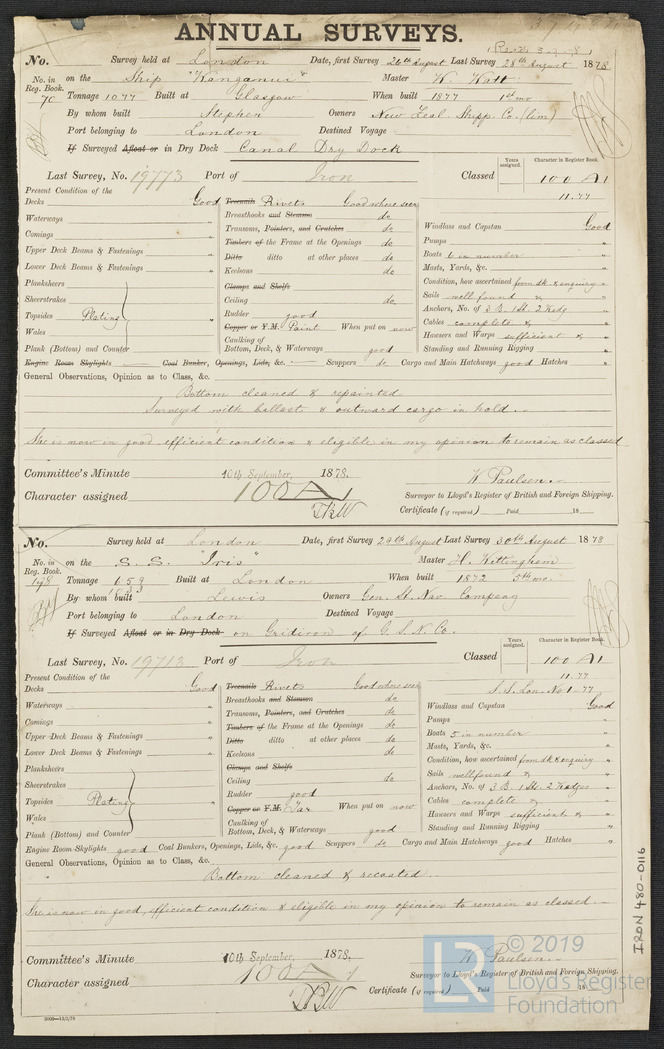 ANNUAL SURVEYS.
No. Survey held at London Date, first Survey 26th August Last Survey 28th August 1878
No. in Reg. Book. 70 on the Ship "Wanganui" Master W. Watt
Tonnage 1077 Built at Glasgow When built 1877 1st mo
By whom built Stephen Owners New Zeal. Shipp. Co. (lim)
Port belonging to London Destined Voyage
If Surveyed Afloat or in Dry Dock Canal Dry Dock
Last Survey, No. 19773 Port of Iron Classed Years assigned. Character in Register Book. 100 A1
11.77
Present Condition of the
Decks Good Treenails Rivets Good where seen
Waterways " Breasthooks and Stemson do
Comings " Transoms, Pointers, and Crutches do Windlass and Capstan Good
Upper Deck Beams & Fastenings " Timbers of the Frame at the Openings do Pumps "
Lower Deck Beams & Fastenings " Ditto ditto at other places do Boats 6 in number "
Keelsons do Masts, Yards, &c. "
Planksheers Clamps and Shelfs Condition, how ascertained from dk & enquiry
Sheerstrakes Ceiling do Sails well found & "
Topsides Plating " Rudder good Anchors, No. of 3 B. 1 St. 2 Kedg
Wales Copper or Y.M. Paint When put on now Cables complete & "
Caulking of Hawsers and Warps sufficient & "
Plank (Bottom) and Counter Bottom, Deck, & Waterways good Standing and Running Rigging "
Engine Room Skylights Coal Bunker, Openings, Lids, &c. Scuppers do Cargo and Main Hatchways good Hatches "
General Observations, Opinion as to Class, &c.
Bottom cleaned & repainted
Surveyed with ballast & outward cargo in hold.
She is now in good efficient condition & eligible in my opinion to remain as classed
Committee's Minute 10th September, 1878. W. Paulsen.
Character assigned 100 A 1 Surveyor to Lloyd's Register of British and Foreign Shipping.
Certificate (if required) Paid 18
No. Survey held at London Date, first Survey 29th August Last Survey 30th August 1878
No. in Reg. Book. 198 on the S. S. "Iris" Master H. Kettingham
Tonnage Built at London When built 1872 5th mo.
By whom built Lewis Owners Gen. St. Nav. Company
Port belonging to London Destined Voyage
If Surveyed Afloat or in Dry Dock on Gridiron of G. S. N. Co.
Last Survey, No. 19713 Port of Iron Classed Years assigned. Character in Register Book. 100 A1
11.77
S.S. Lon. No 1-77
Present Condition of the
Decks Good Treenails Rivets Good where seen
Waterways " Breasthooks and Stemson do Windlass and Capstan Good
Comings " Transoms, Pointers, and Crutches do Pumps "
Upper Deck Beams & Fastenings " Timbers of the Frame at the Openings do Boats 5 in number "
Lower Deck Beams & Fastenings " Ditto ditto at other places do Masts, Yards, &c. "
Keelsons do Condition, how ascertained from dk & enquiry
Planksheers Clamps and Shelfs Sails well found & "
Sheerstrakes Ceiling do Anchors, No. of 3 B. 1 St. 2 Kedges
Topsides Plating " Rudder good Cables complete & "
Wales Copper or Y.M. Tar When put on now Hawsers and Warps sufficient & "
Caulking of
Plank (Bottom) and Counter Bottom, Deck, & Waterways good Standing and Running Rigging "
Engine Room Skylights good Coal Bunkers, Openings, Lids, &c. good Scuppers do Cargo and Main Hatchways good Hatches "
General Observations, Opinion as to Class, &c.
Bottom cleaned & recoated
She is now in good, efficient condition & eligible in my opinion to remain as classed.
Committee's Minute 10th September, 1878. W. Paulsen.
Character assigned 100 A 1 Surveyor to Lloyd's Register of British and Foreign Shipping.
Certificate (if required) Paid 18
IRON 480-0116
LR © 2019
Lloyd's Register
Foundation